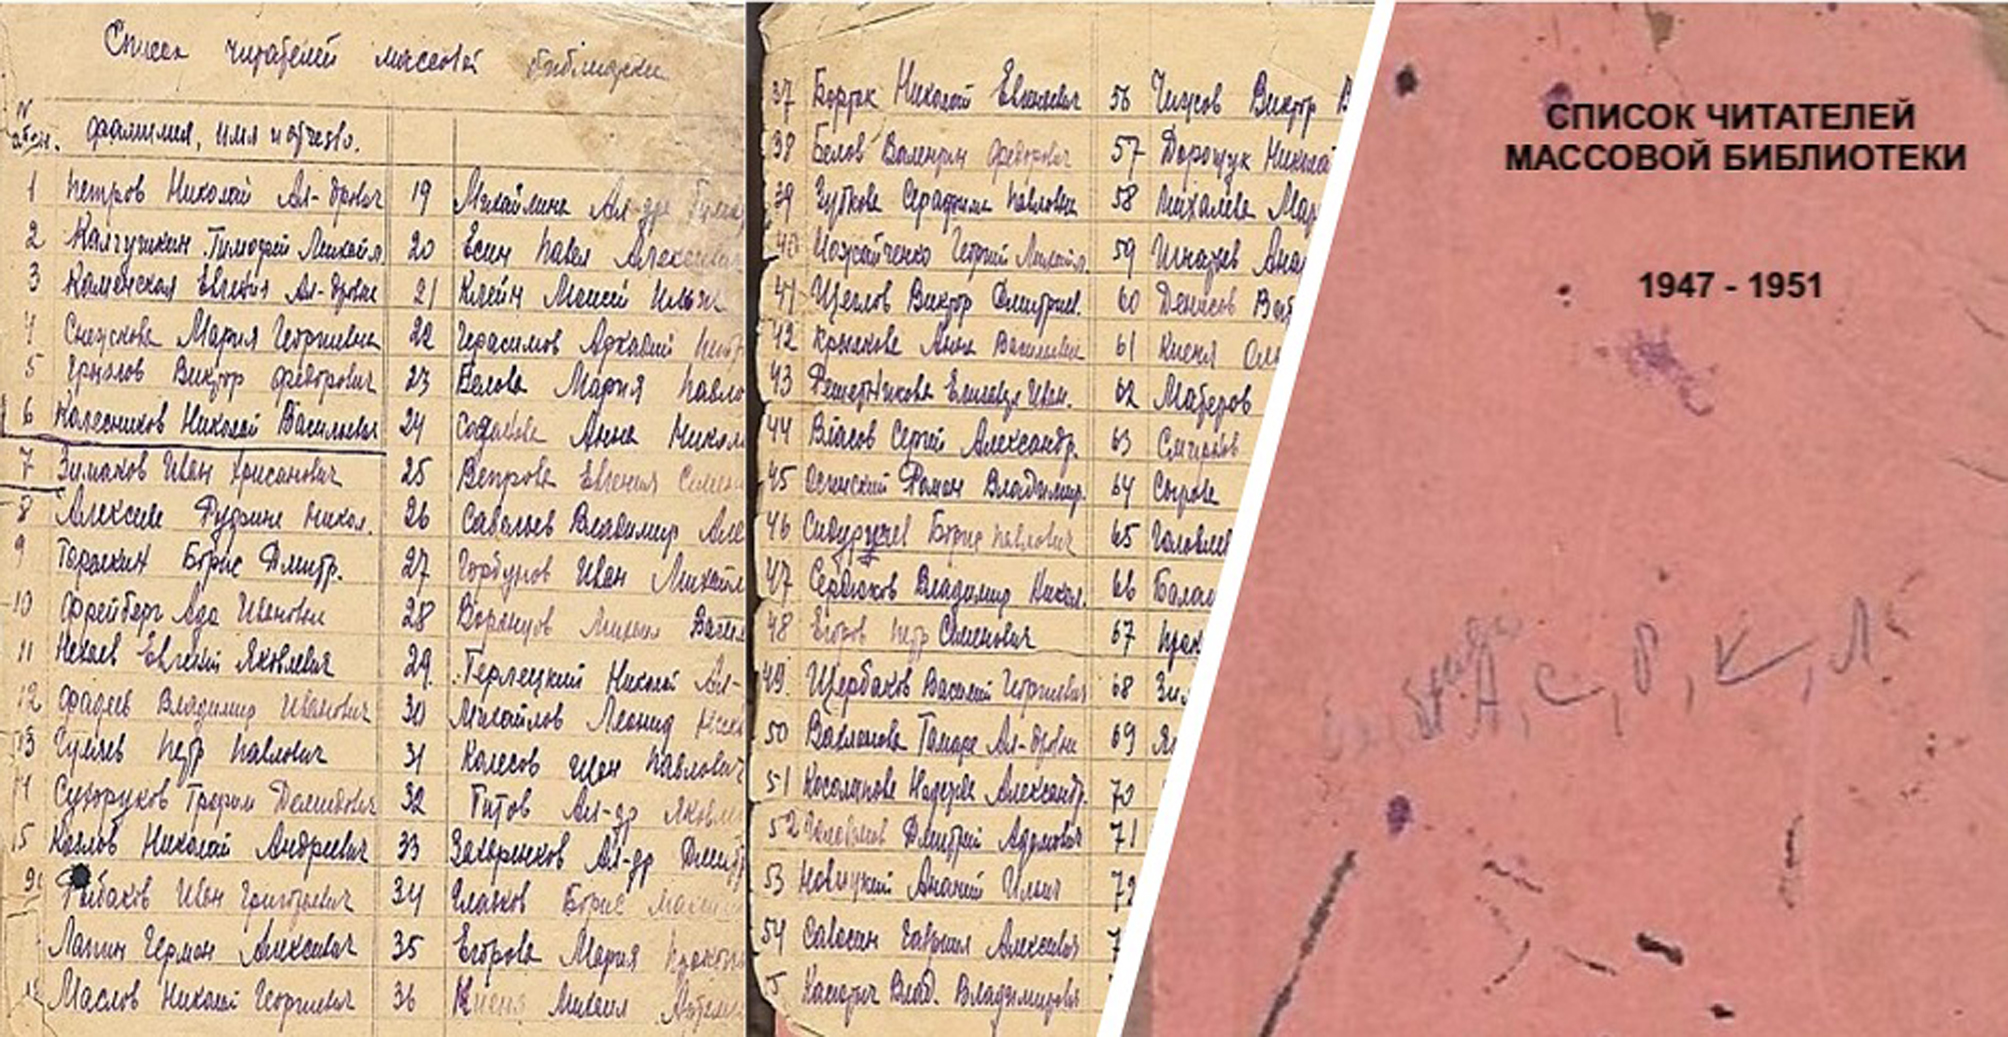 Список читателей массовой библиотеки
N абон. фамилия, имя и отчество.
1 Петров Николай Ал-дрович
2 Калгушкин Тимофей Михайл.
3 Каменская Евгения Ал-дровн
4 Снежкова Мария Георгиевна
5 Ермолов Виктор Федорович
6 Колесников Николай Васильевич
7 Зимаков Иван Хрисанович
8 Алексеев Никол.
9 Торопкин Борис Дмитр.
10 Фрейберг Ада Ивановн
11 Нехаев Евгений Яковлевич
12 Фадеев Владимир Иванович
13 Гуляев Петр Павлович
Сухоруков Трофим Демидович
15 Козлов Николай Андреевич
Рыбаков Иван Григорьевич
Лапин Герман Алексеевич
Маслов Николай Георгиевич
19 Михайлина Ал-др
20 Есин Павел Алексеевич
21 Клейн Моисей Ильич
22 Герасимов Аркадий
23 Белова Мария Павло
24 Анна Никол
25 Вепрова Евгения Семен
26 Савельев Владимир Але
27 Горбунов Иван Михайл
28 Воронцов Михаил Васил
29. Терлецкий Николай Ал-
30 Михайлов Леонид
31 Колесов Иван Павлович
32 Титов Ал-др Яковл
33 Захаренков Ал-др Дмитр
34 Глазков Борис Макси
35 Егорова Мария
36 Киеня Михаил
37 Бортак Николай Евгеневич
38 Белов Валентин Федорович
39 Зубкова Серафима Павловна
40 Георгий Михайл.
41 Щеглов Виктор Дмитриев.
42 Крюкова Анна Васильевн
43 Решетникова Елизавет Иван.
44 Власов Сергей Александр.
45 Осинский Роман Владимир.
46 Сивургучев Борис Павлович
47 Сердюков Владимир Никол.
48 Егоров Петр Семенович
49. Щербаков Василий Георгиевич
50 Вахламова Тамара Ал-дровн
51 Косолапова Надежда Александр.
52 Дмитрий Адамович
53 Новицкий Ананий Ильич
54 Савосин Гавриил Алексеевич
5 Влад. Владимирович
56 Чижов Виктор В
57 Дорощук Никола
58 Михалева Мар
59 Игнатьев Ана
60 Денисов Ва
61 Киеня Ол
62 Матеров
63 Смирнов
64 Сырова
65 Головле
66 Балаш
67 Прох
68 Зи
69 Я
70
71
72
7
СПИСОК ЧИТАТЕЛЕЙ
МАССОВОЙ БИБЛИОТЕКИ
1947 - 1951
А, С, Р, К, Л